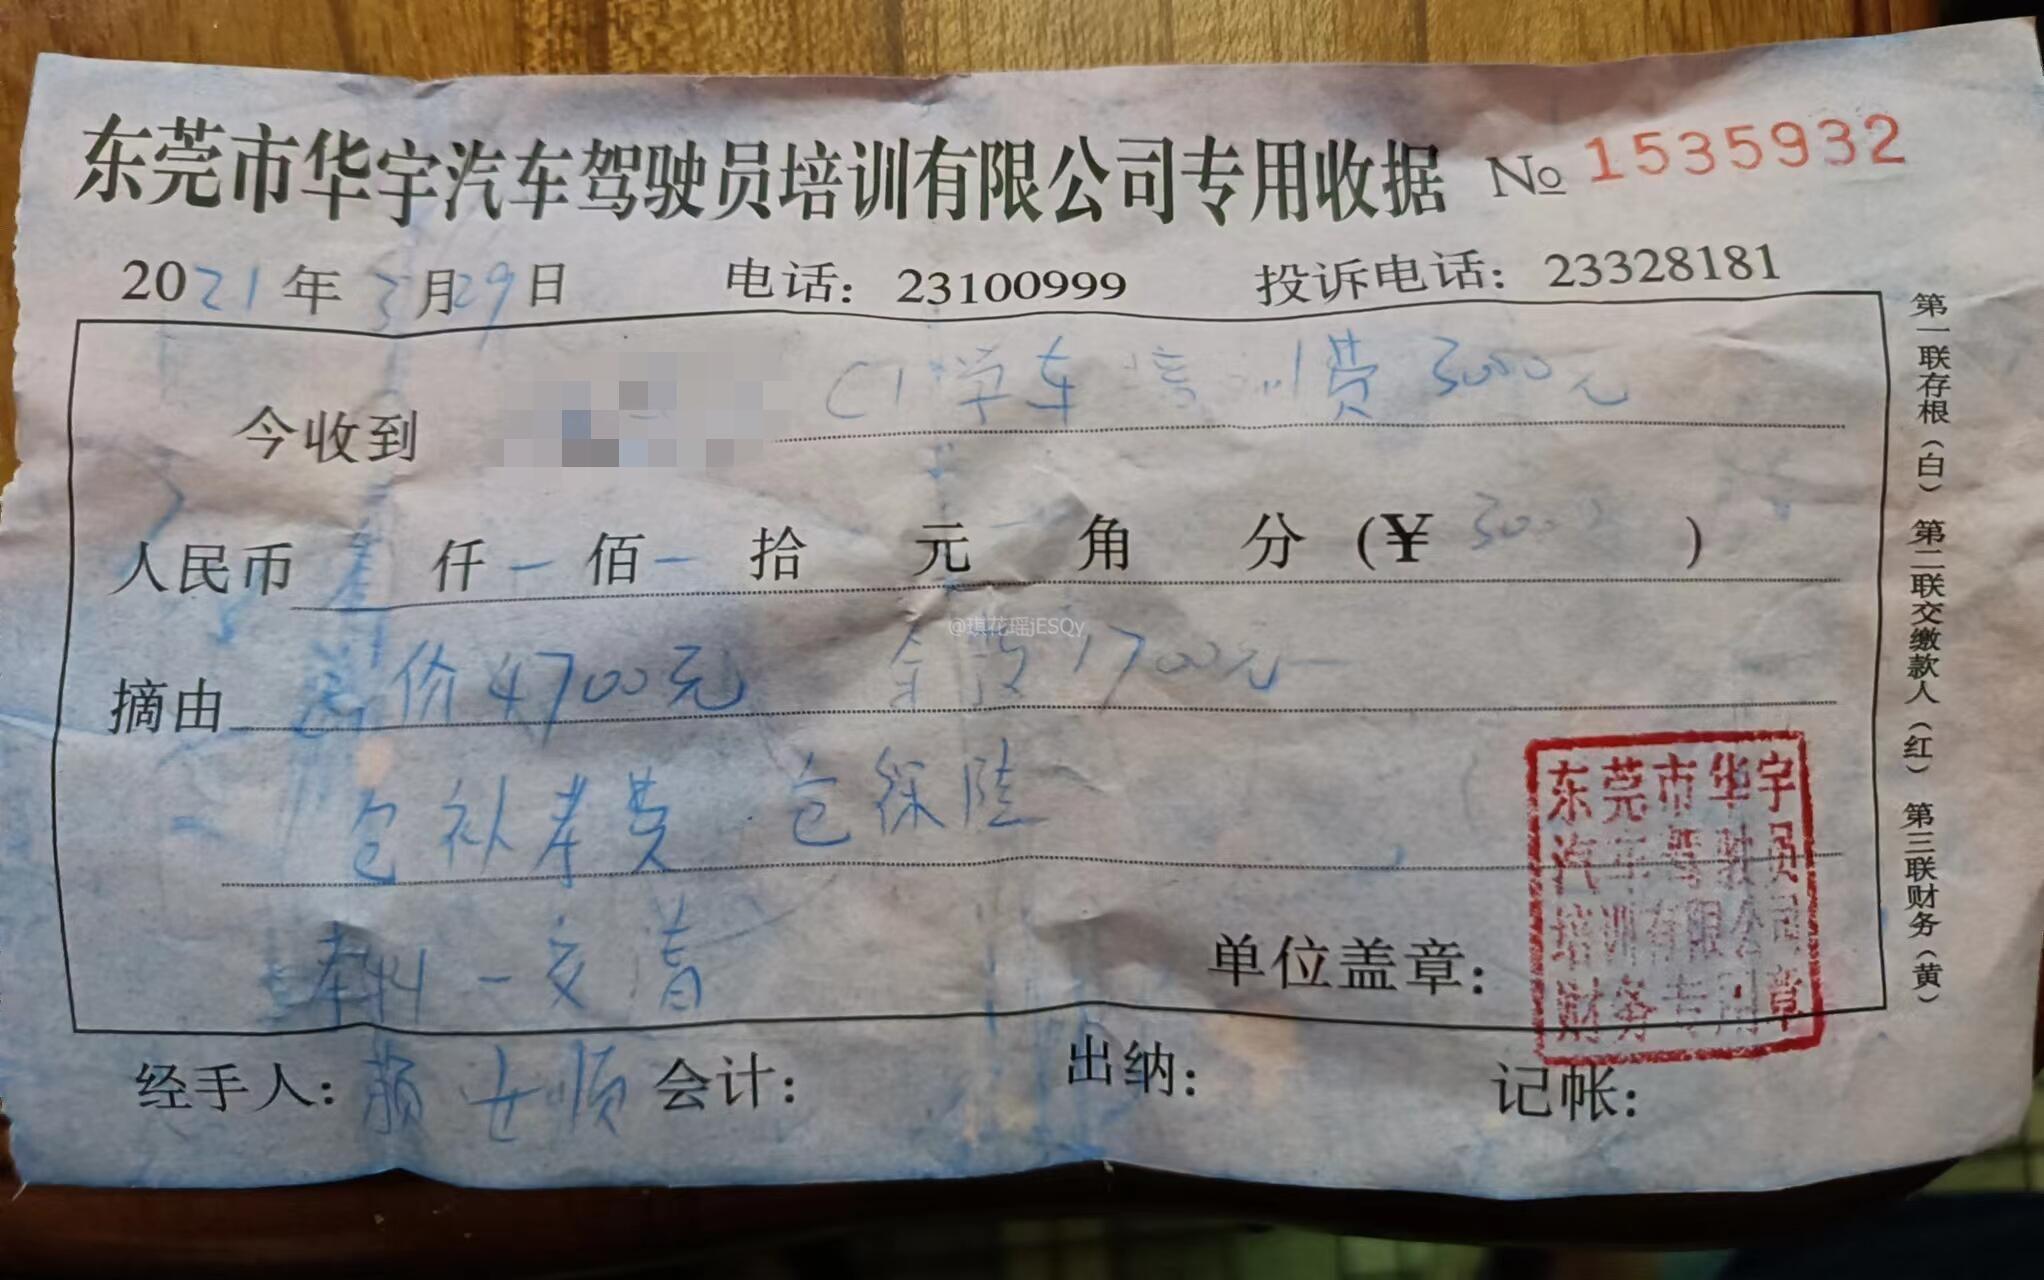 东莞市华宇汽车驾驶员培训有限公司专用收据 № 1535932
2021年3月29日 电话：23100999 投诉电话：23328181
今收到 C1学车培训费3000元
人民币叁仟一佰一拾 元 角 分（¥3000）
摘由 总价4700元 余款1700元
包补考费 包保险
一交清
单位盖章：
经手人： 会计： 出纳： 记帐：
东莞市华宇
汽车驾驶员
培训有限公司
财务专用章
第一联存根（白） 第二联交缴款人（红） 第三联财务（黄）
@琪花瑶jESQy